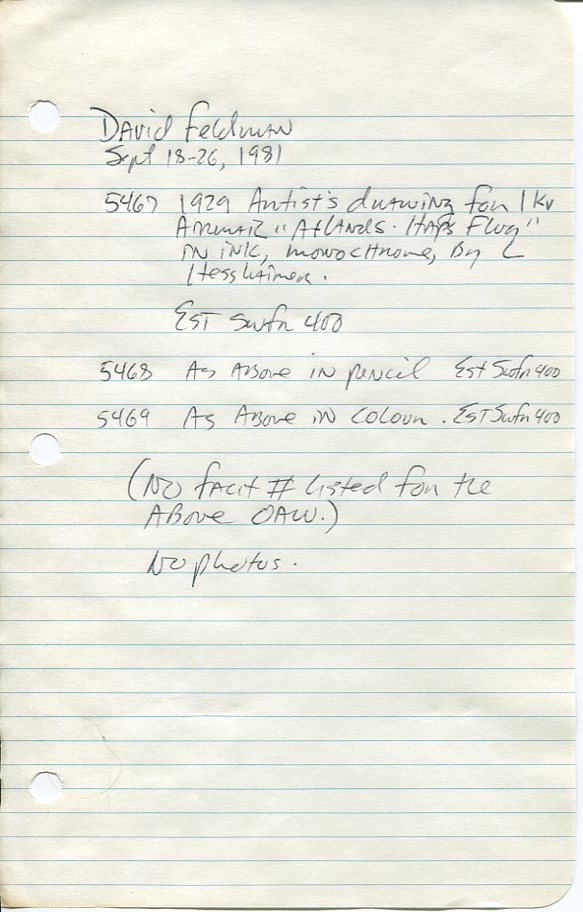 David Feldman
Sept 18-26, 1981
5467 1929 Artist's drawing for 1 kr
Airmail "Atlands. Hafs Flug"
in ink, monochrome, by L
Hesshaimer.
Est Swfr 400
5468 As Above in pencil Est Swfr 400
5469 As Above in colour. Est Swfr 400
(No facit # listed for the
Above OAW.)
No photos.